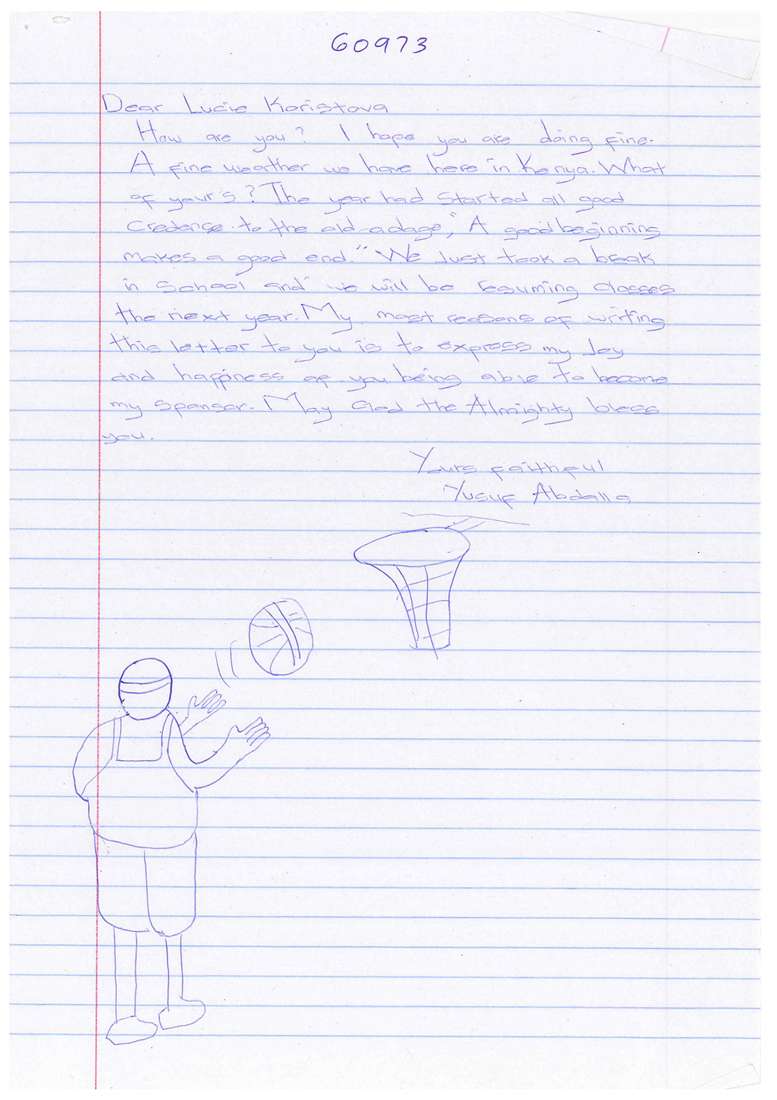 60973
Dear Lucie Koristova
How are you? I hope you are doing fine.
A fine weather we have here in Kenya. What
of your's? The year had started all good
Credence to the old adage, "A good beginning
makes a good end." We Just took a break
in School and we will be resuming classes
the next year. My most reasons of writing
this letter to you is to express my Joy
and happiness of you being able to become
my sponsor. May God the Almighty bless
you.
Yours faithful
Yusuf Abdalla